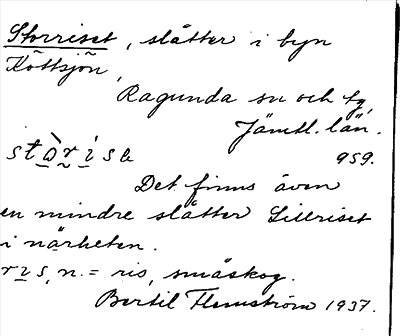 Storriset, slåtter i byn
Köttsjön,
Ragunda sn och tg,
Jämtl. län.
stòrisa 959.
Det finns även
en mindre slåtter Lillriset
i närheten.
ris, n. = ris, småskog.
Bertil Flemström 1937.